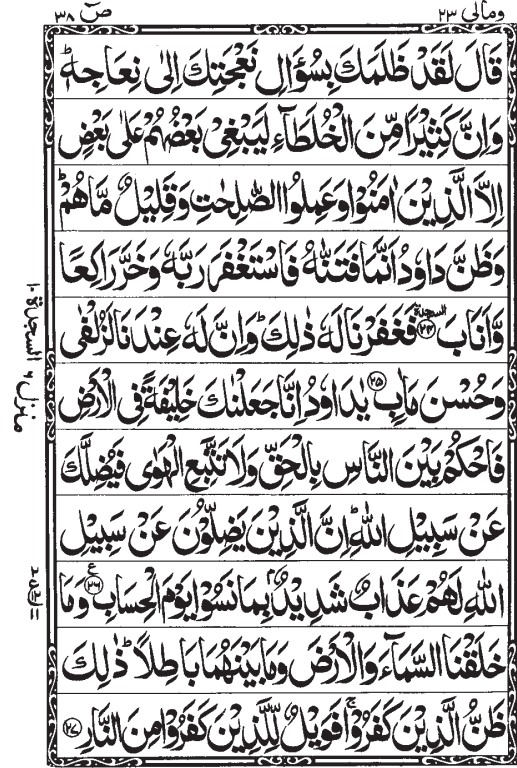 ومالی ٢٣
صٓ ٣٨
قَالَ لَقَدْ ظَلَمَكَ بِسُؤَالِ نَعْجَتِكَ اِلٰى نِعَاجِهٖ ؕ
وَاِنَّ كَثِيْرًا مِّنَ الْخُلَطَآءِ لَيَبْغِىْ بَعْضُهُمْ عَلٰى بَعْضٍ
اِلَّا الَّذِيْنَ اٰمَنُوْا وَعَمِلُوا الصّٰلِحٰتِ وَقَلِيْلٌ مَّا هُمْ ؕ
وَظَنَّ دَاوٗدُ اَنَّمَا فَتَنّٰهُ فَاسْتَغْفَرَ رَبَّهٗ وَخَرَّ رَاكِعًا
وَّاَنَابَ السجدة ٢٤ فَغَفَرْنَا لَهٗ ذٰلِكَ ؕ وَاِنَّ لَهٗ عِنْدَنَا لَزُلْفٰى
وَحُسْنَ مَاٰبٍ ٢٥ يٰدَاوٗدُ اِنَّا جَعَلْنٰكَ خَلِيْفَةً فِى الْاَرْضِ
فَاحْكُمْ بَيْنَ النَّاسِ بِالْحَقِّ وَلَا تَتَّبِعِ الْهَوٰى فَيُضِلَّكَ
عَنْ سَبِيْلِ اللّٰهِ ؕ اِنَّ الَّذِيْنَ يَضِلُّوْنَ عَنْ سَبِيْلِ
اللّٰهِ لَهُمْ عَذَابٌ شَدِيْدٌۢ بِمَا نَسُوْا يَوْمَ الْحِسَابِ ٢٦ ع وَمَا
خَلَقْنَا السَّمَآءَ وَالْاَرْضَ وَمَا بَيْنَهُمَا بَاطِلًا ؕ ذٰلِكَ
ظَنُّ الَّذِيْنَ كَفَرُوْا ۚ فَوَيْلٌ لِّلَّذِيْنَ كَفَرُوْا مِنَ النَّارِ ٢٧
السجدة ١٠
منزل ٦